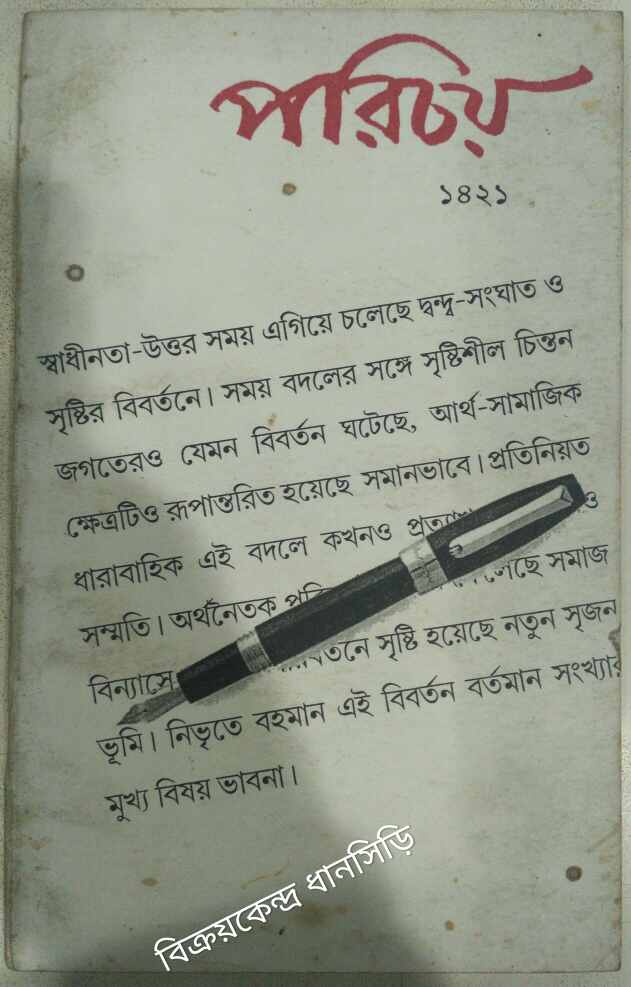 পরিচয়
১৪২১
স্বাধীনতা-উত্তর সময় এগিয়ে চলেছে দ্বন্দ্ব-সংঘাত ও
সৃষ্টির বিবর্তনে। সময় বদলের সঙ্গে সৃষ্টিশীল চিন্তন
জগতেরও যেমন বিবর্তন ঘটেছে, আর্থ-সামাজিক
ক্ষেত্রটিও রূপান্তরিত হয়েছে সমানভাবে। প্রতিনিয়ত
ধারাবাহিক এই বদলে কখনও ও
সম্মতি। অর্থনৈতিক সমাজ
বিন্যাসে সৃষ্টি হয়েছে নতুন সৃজন
ভূমি। নিভৃতে বহমান এই বিবর্তন বর্তমান সংখ্যার
মুখ্য বিষয় ভাবনা।
বিক্রয়কেন্দ্র ধানসিড়ি